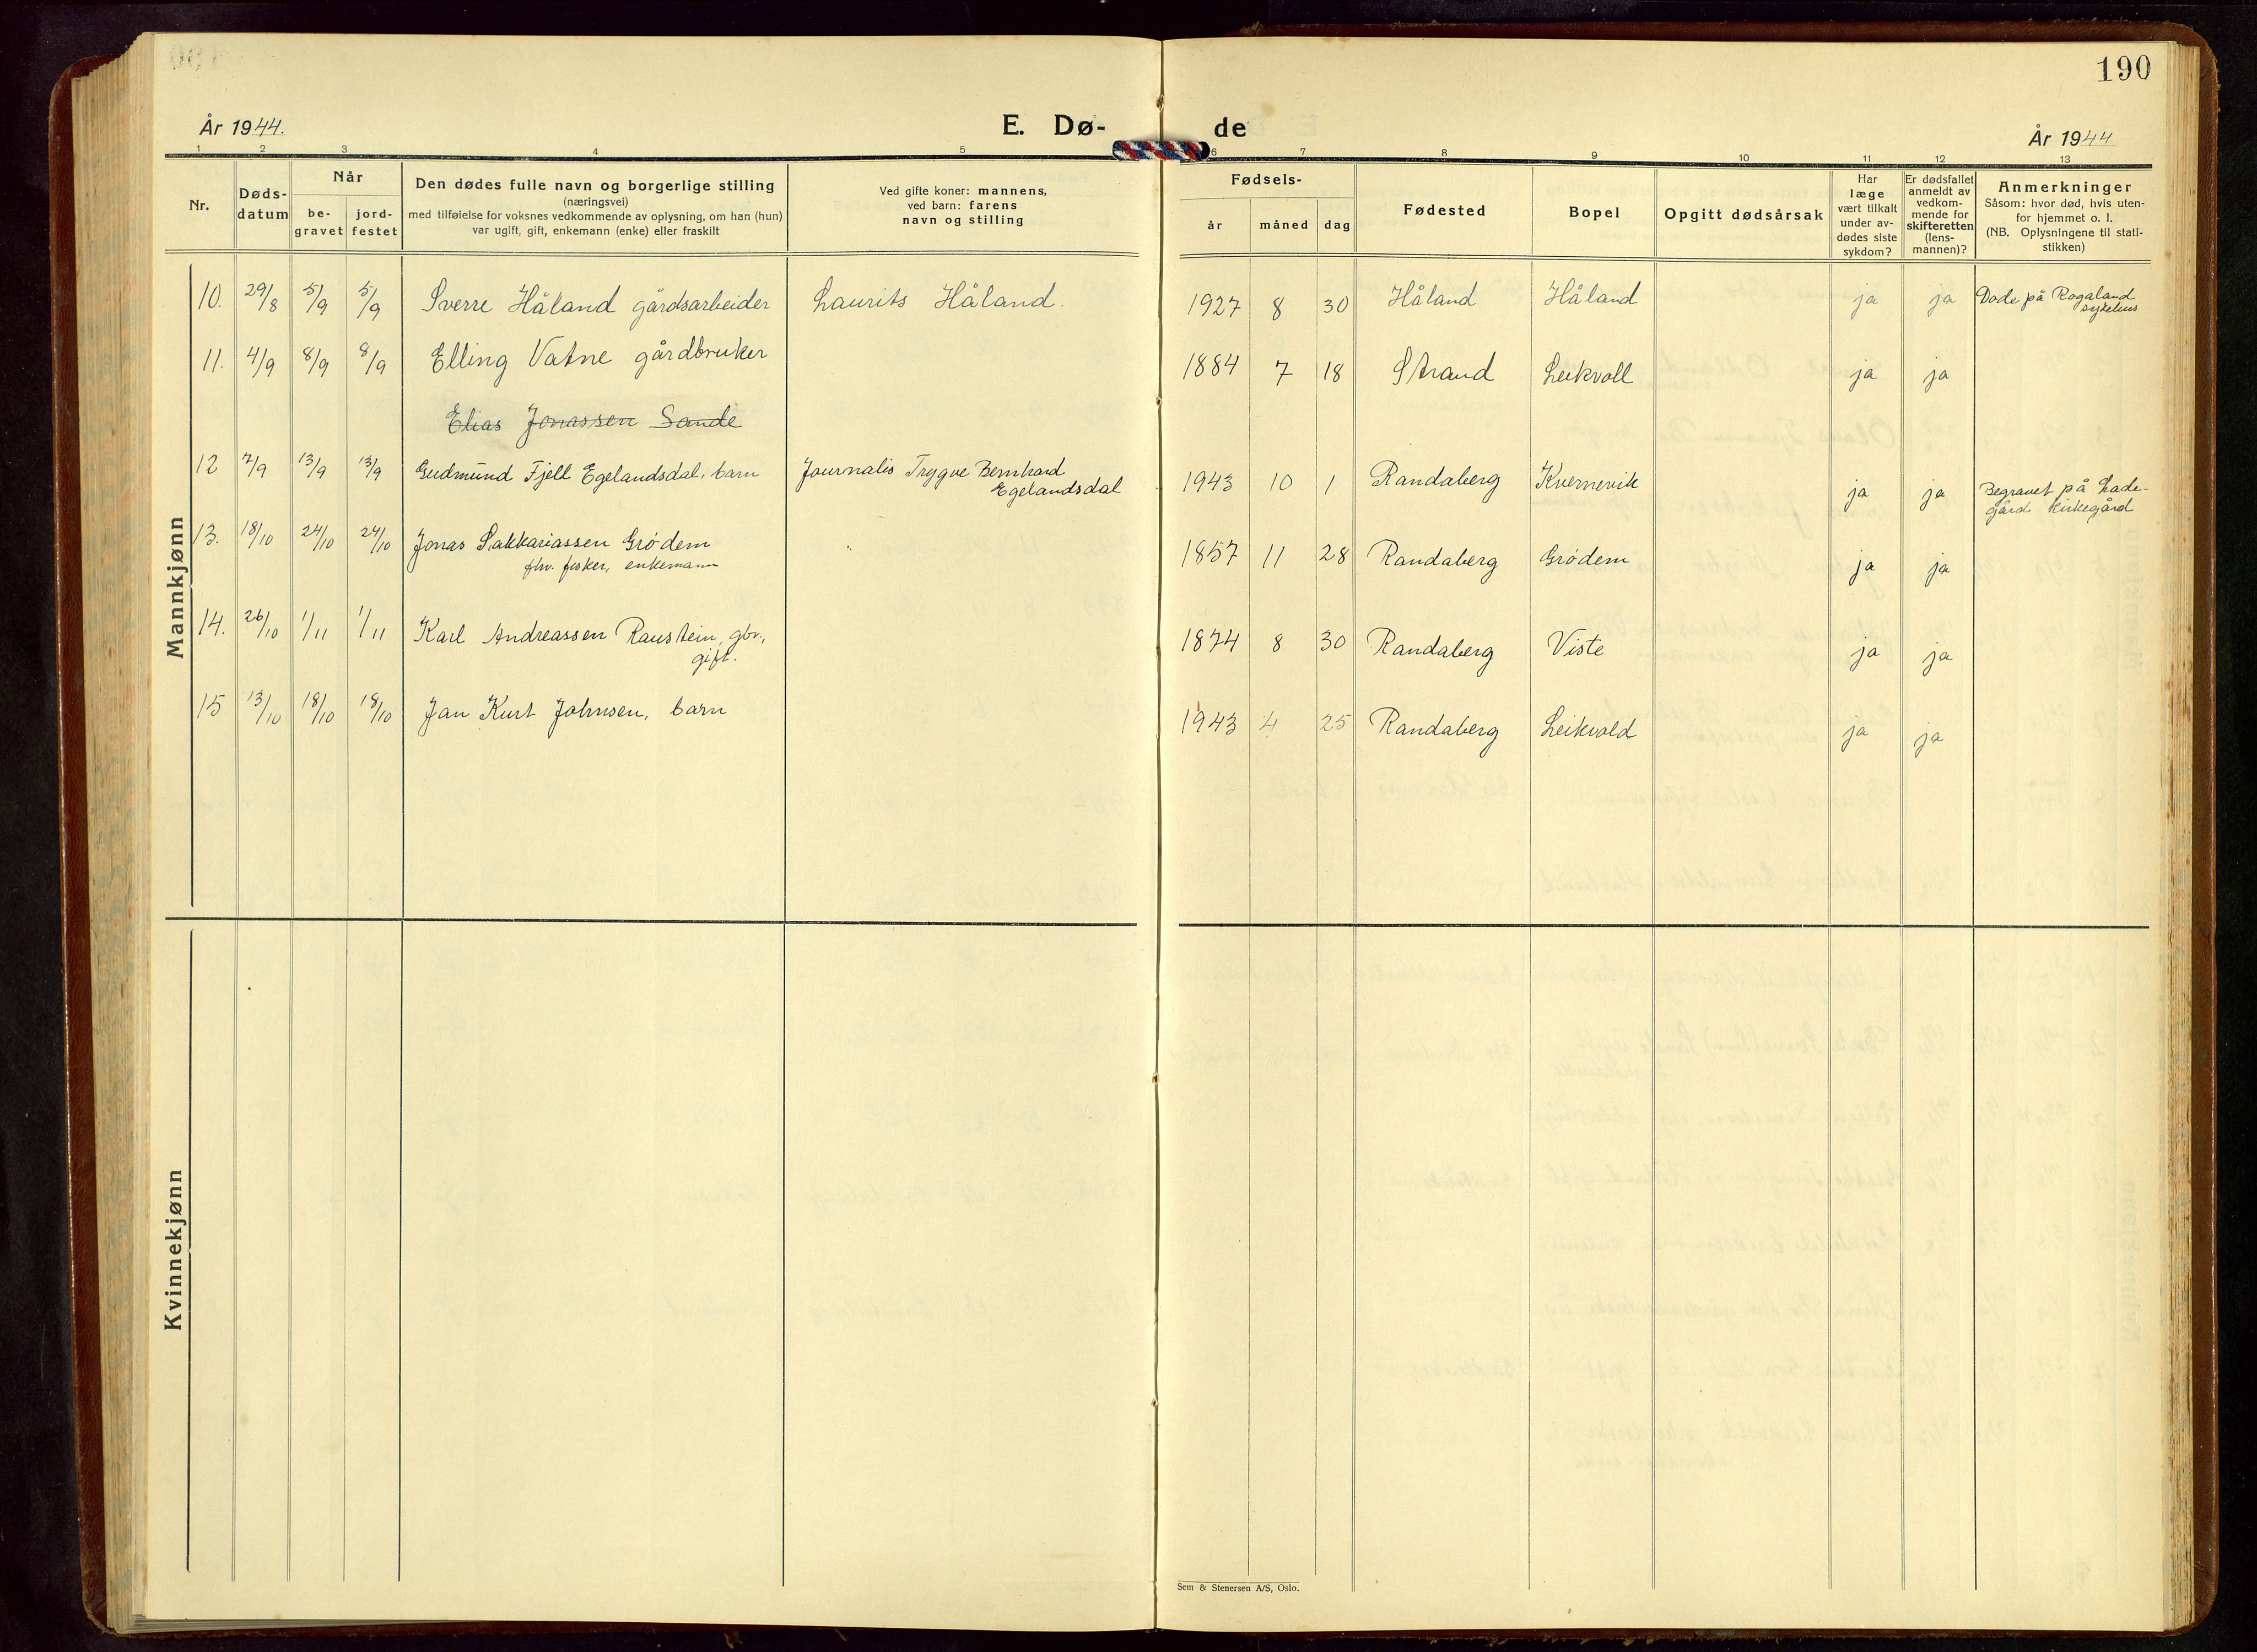 190
År 1944.
E. Dø-
de
År 1944
1 2 3 4 5 6 7 8 9 10 11 12 13
Nr.
Døds-
datum
Når
be-
gravet
jord-
festet
Den dødes fulle navn og borgerlige stilling
(næringsvei)
med tilføielse for voksnes vedkommende av oplysning, om han (hun)
var ugift, gift, enkemann (enke) eller fraskilt
Ved gifte koner: mannens,
ved barn: farens
navn og stilling
Fødsels-
år måned dag
Fødested
Bopel
Opgitt dødsårsak
Har
læge
vært tilkalt
under av-
dødes siste
sykdom?
Er dødsfallet
anmeldt av
vedkom-
mende for
skifteretten
(lens-
mannen)?
Anmerkninger
Såsom: hvor død, hvis uten-
for hjemmet o. l.
(NB. Oplysningene til stati-
stikken)
Mannkjønn
10. 29/8 5/9 5/9 Sverre Håland gårdsarbeider Laurits Håland. 1927 8 30 Håland Håland ja ja Døde på Rogaland
sykehus
11. 4/9 8/9 8/9 Elling Vatne gårdbruker 1884 7 18 Strand Leikvoll ja ja
Elias Jonassen Sande
12 7/9 13/9 13/9 Gudmund Fjell Egelandsdal, barn Journalis Trygve Bernhard
Egelandsdal 1943 10 1 Randaberg Kvernevik ja ja Begravet på Lade-
gård kirkegård
13. 18/10 24/10 24/10 Jonas Sakkariassen Grødem
fhv. fisker, enkemann 1857 11 28 Randaberg Grødem ja ja
14. 26/10 1/11 1/11 Karl Andreassen Raustein, gbr.,
gift. 1874 8 30 Randaberg Viste ja ja
15 13/10 18/10 18/10 Jan Kurt Johnsen, barn 1943 4 25 Randaberg Leikvold ja ja
Kvinnekjønn
Sem & Stenersen A/S, Oslo.